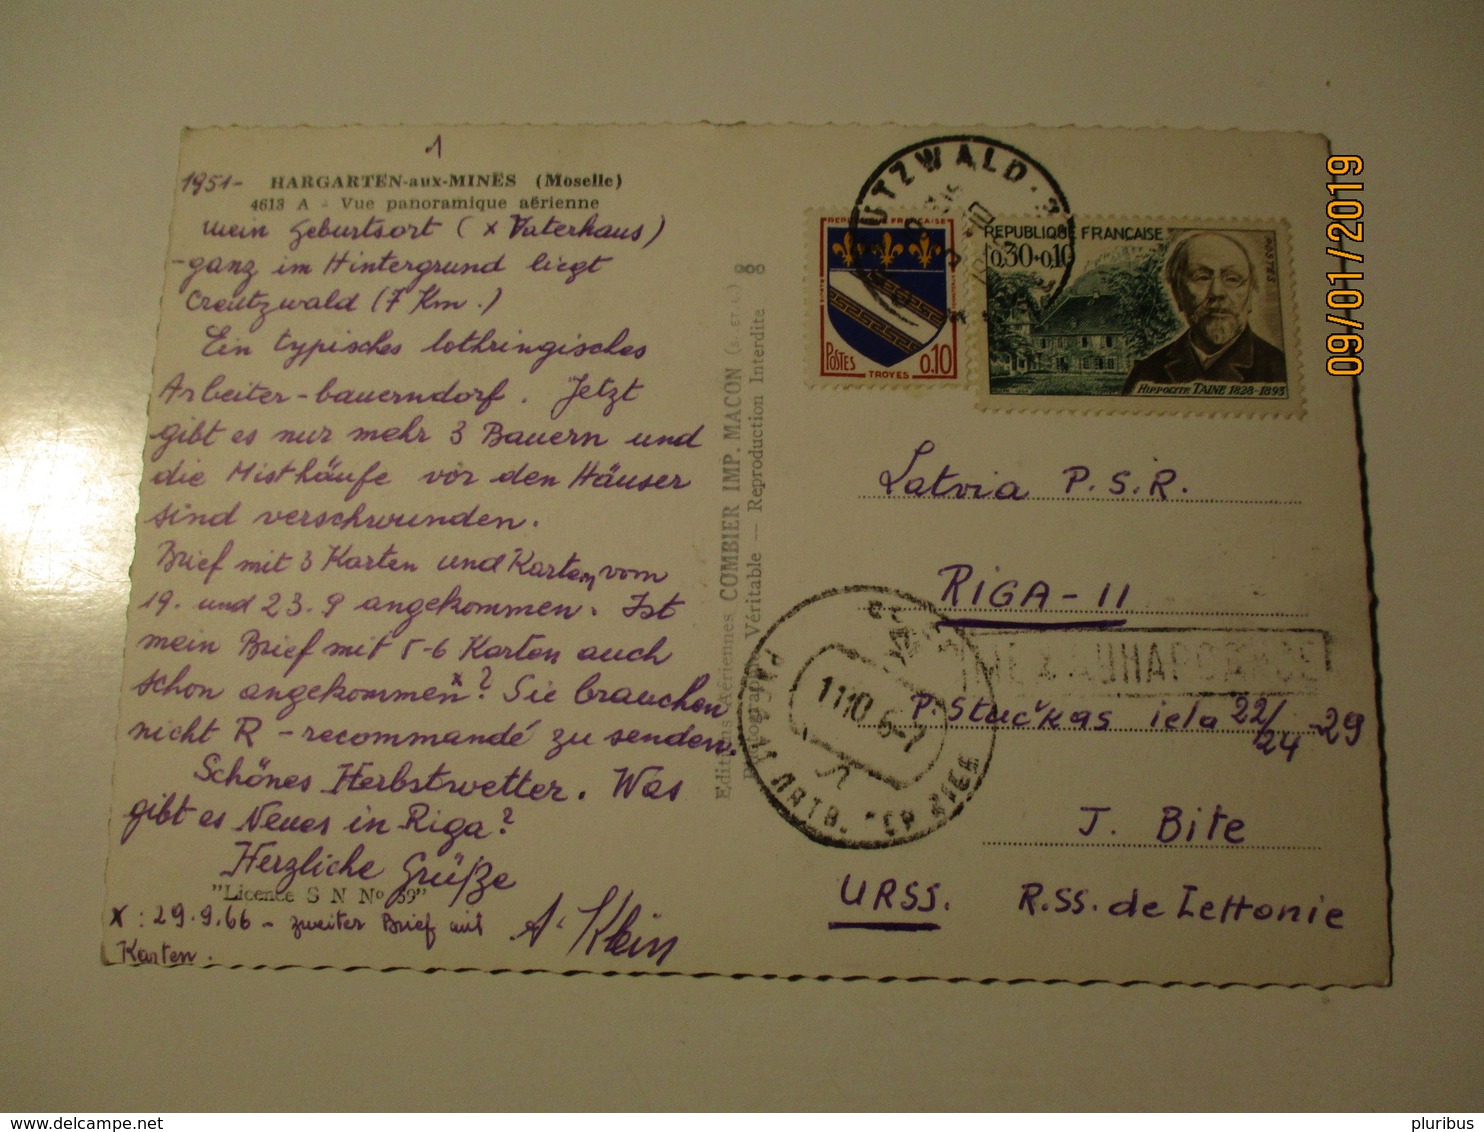 1
1951- HARGARTEN-aux-MINES (Moselle)
4613 A - Vue panoramique aérienne
mein Geburtsort (x Vaterhaus)
-ganz im Hintergrund liegt
Creutzwald (7 Km.)
Ein typisches lothringisches
Arbeiter-bauerndorf. Jetzt
gibt es nur mehr 3 Bauern und
die Misthäufe vor den Häuser
sind verschwunden.
Brief mit 3 Karten und Karten vom
19. und 23.9 angekommen. Ist
mein Brief mit 5-6 Karten auch
schon angekommen x? Sie brauchen
nicht R - recommandé zu senden.
Schönes Herbstwetter. Was
gibt es Neues in Riga?
Herzliche Grüße
"Licence S N No 39"
x : 29.9.66 - zweiter Brief mit
Karten.
A. Klein
Editions Aériennes COMBIER IMP. MACON (S.-ET-L.)
Photographie Véritable — Reproduction Interdite
UTZWALD
REPUBLIQUE FRANÇAISE
POSTES 0,10
TROYES
REPUBLIQUE FRANÇAISE
0,30+0,10
POSTES
HIPPOLYTE TAINE 1828-1893
Latvia P.S.R.
RIGA-11
11 10 6
P. Stučkas iela 22/24 -29
J. Bite
URSS. R.SS. de Lettonie
09/01/2019
pluribus
www.delcampe.net